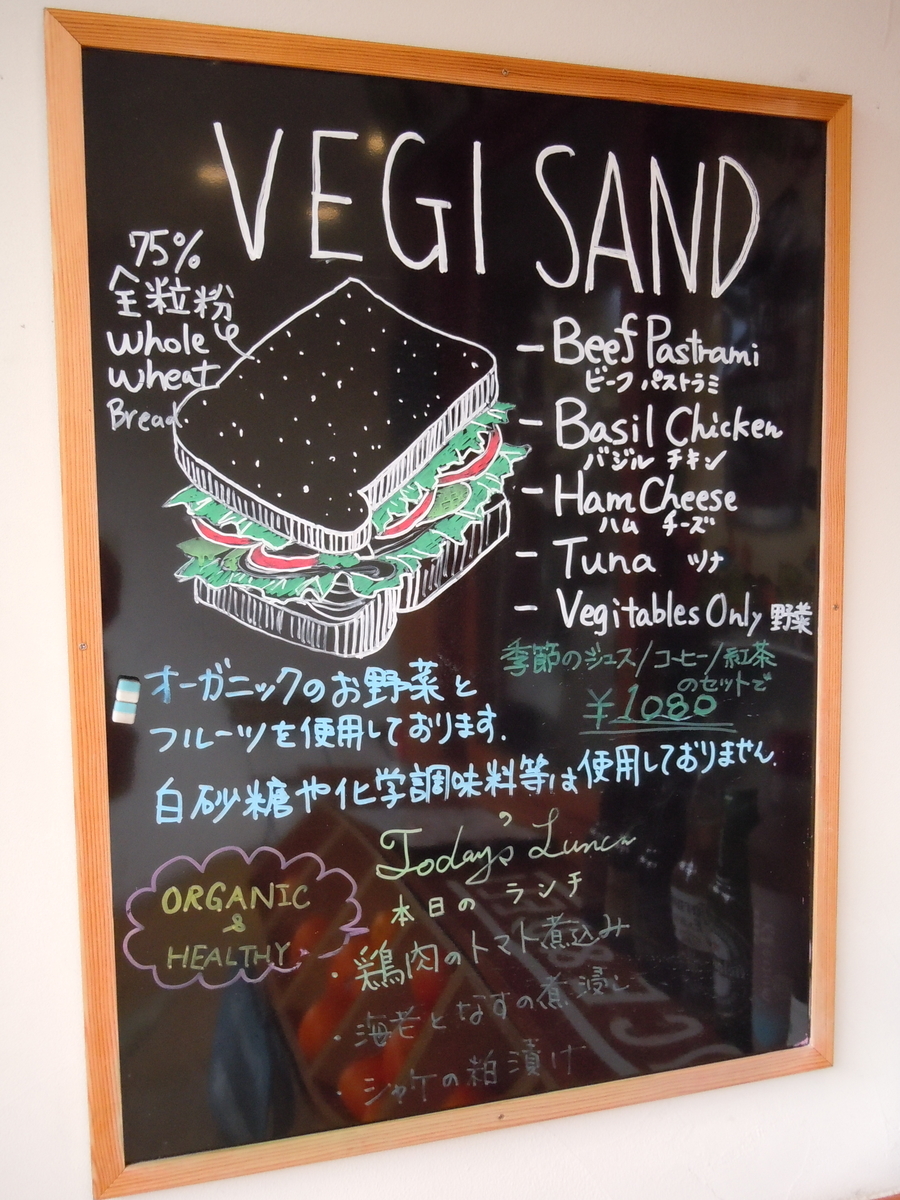 VEGI SAND
75%
全粒粉
whole
wheat
Bread
- Beef Pastrami
ビーフ パストラミ
- Basil Chicken
バジル チキン
- Ham Cheese
ハム チーズ
- Tuna ツナ
- Vegitables Only 野菜
季節のジュース/コーヒー/紅茶
のセットで
¥1080
オーガニックのお野菜と
フルーツを使用しております.
白砂糖や化学調味料等は使用しておりません.
ORGANIC
&
HEALTHY
Today's Lunch
本日の ランチ
・鶏肉のトマト煮込み
・海老となすの煮浸し
・シャケの粕漬け